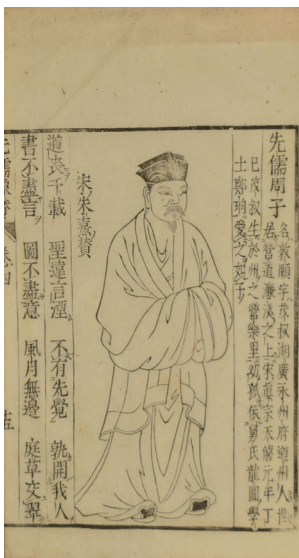 先儒周子
名敦頤字茂叔湖廣永州府道州人世
居營道濂溪之上宋真宗天禧元年丁
巳茂叔生於州之營樂里幼孤依舅氏龍圖學
士鄭珦愛之如子
宋朱熹贊
道喪千載 聖遠言湮 不有先覺 孰開我人
書不盡言 圖不盡意 風月無邊 庭草交翠
卷四